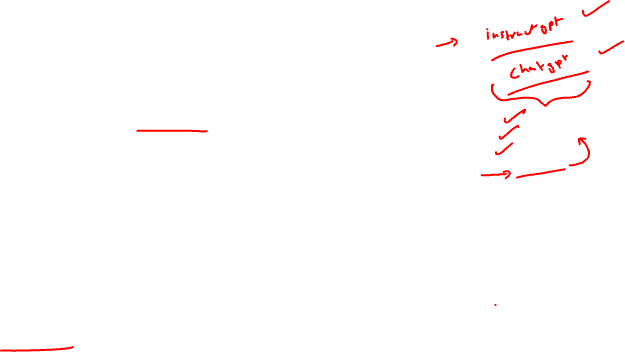 instructgpt
chatgpt